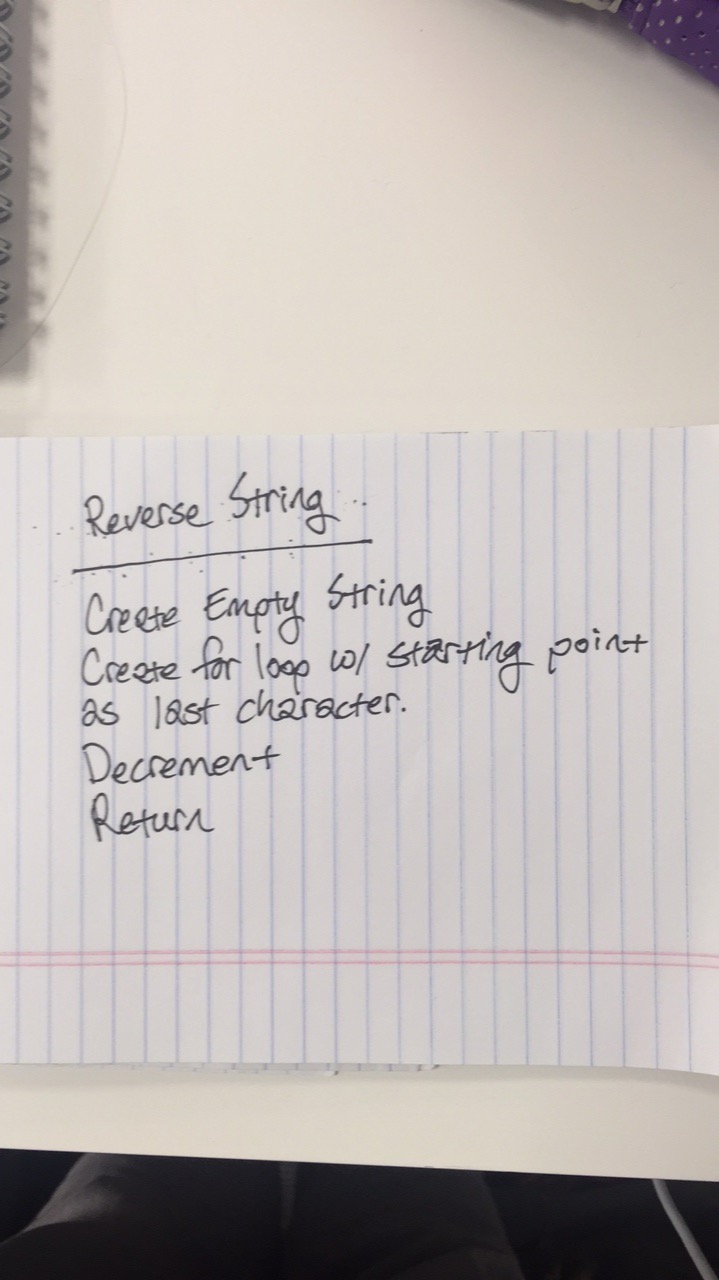 Reverse String
Create Empty String
Create for loop w/ starting point
as last character.
Decrement
Return